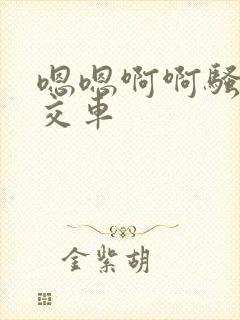 嗯嗯啊啊骚
交车
金紫胡